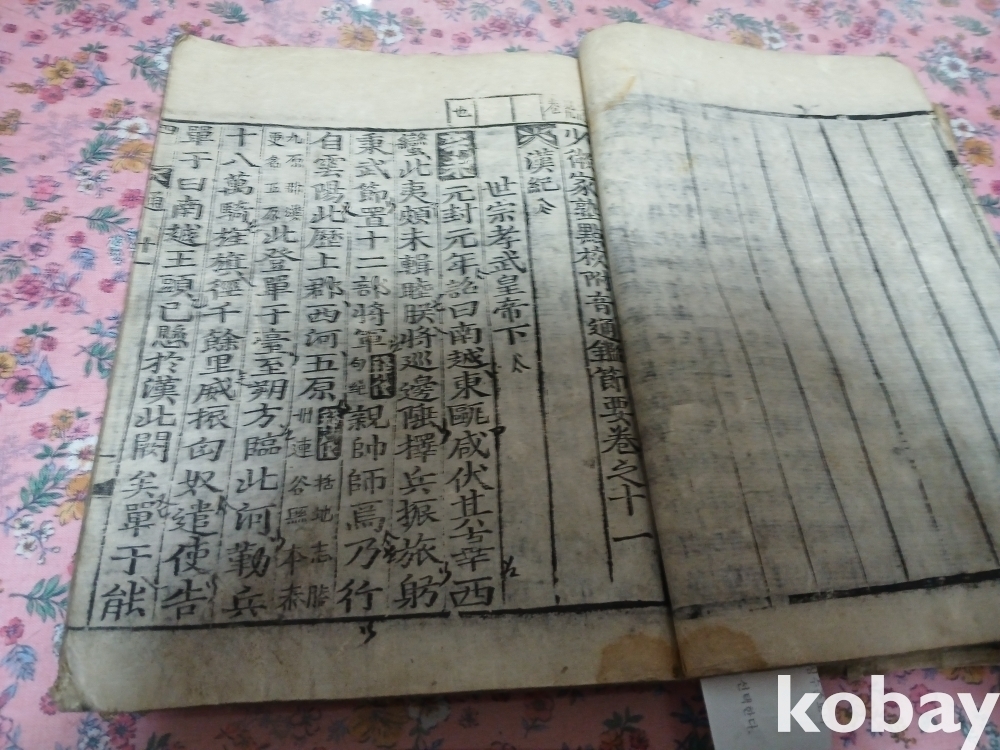 少微家塾點校附音通鑑節要卷之十一
漢紀
世宗孝武皇帝下
元封元年詔曰南越東甌咸伏其辜西
蠻北夷頗未輯睦朕將巡邊陲擇兵振旅躬
秉武節置十二部將軍句絕親帥師焉乃行
自雲陽北歷上郡西河五原括地志勝州連谷縣本秦
九原郡漢更名五原北登單于臺至朔方臨北河勒兵
十八萬騎旌旗徑千餘里威振匈奴遣使告
單于曰南越王頭已懸於漢北闕矣單于能
通
十一
也
선택한다.
kobay